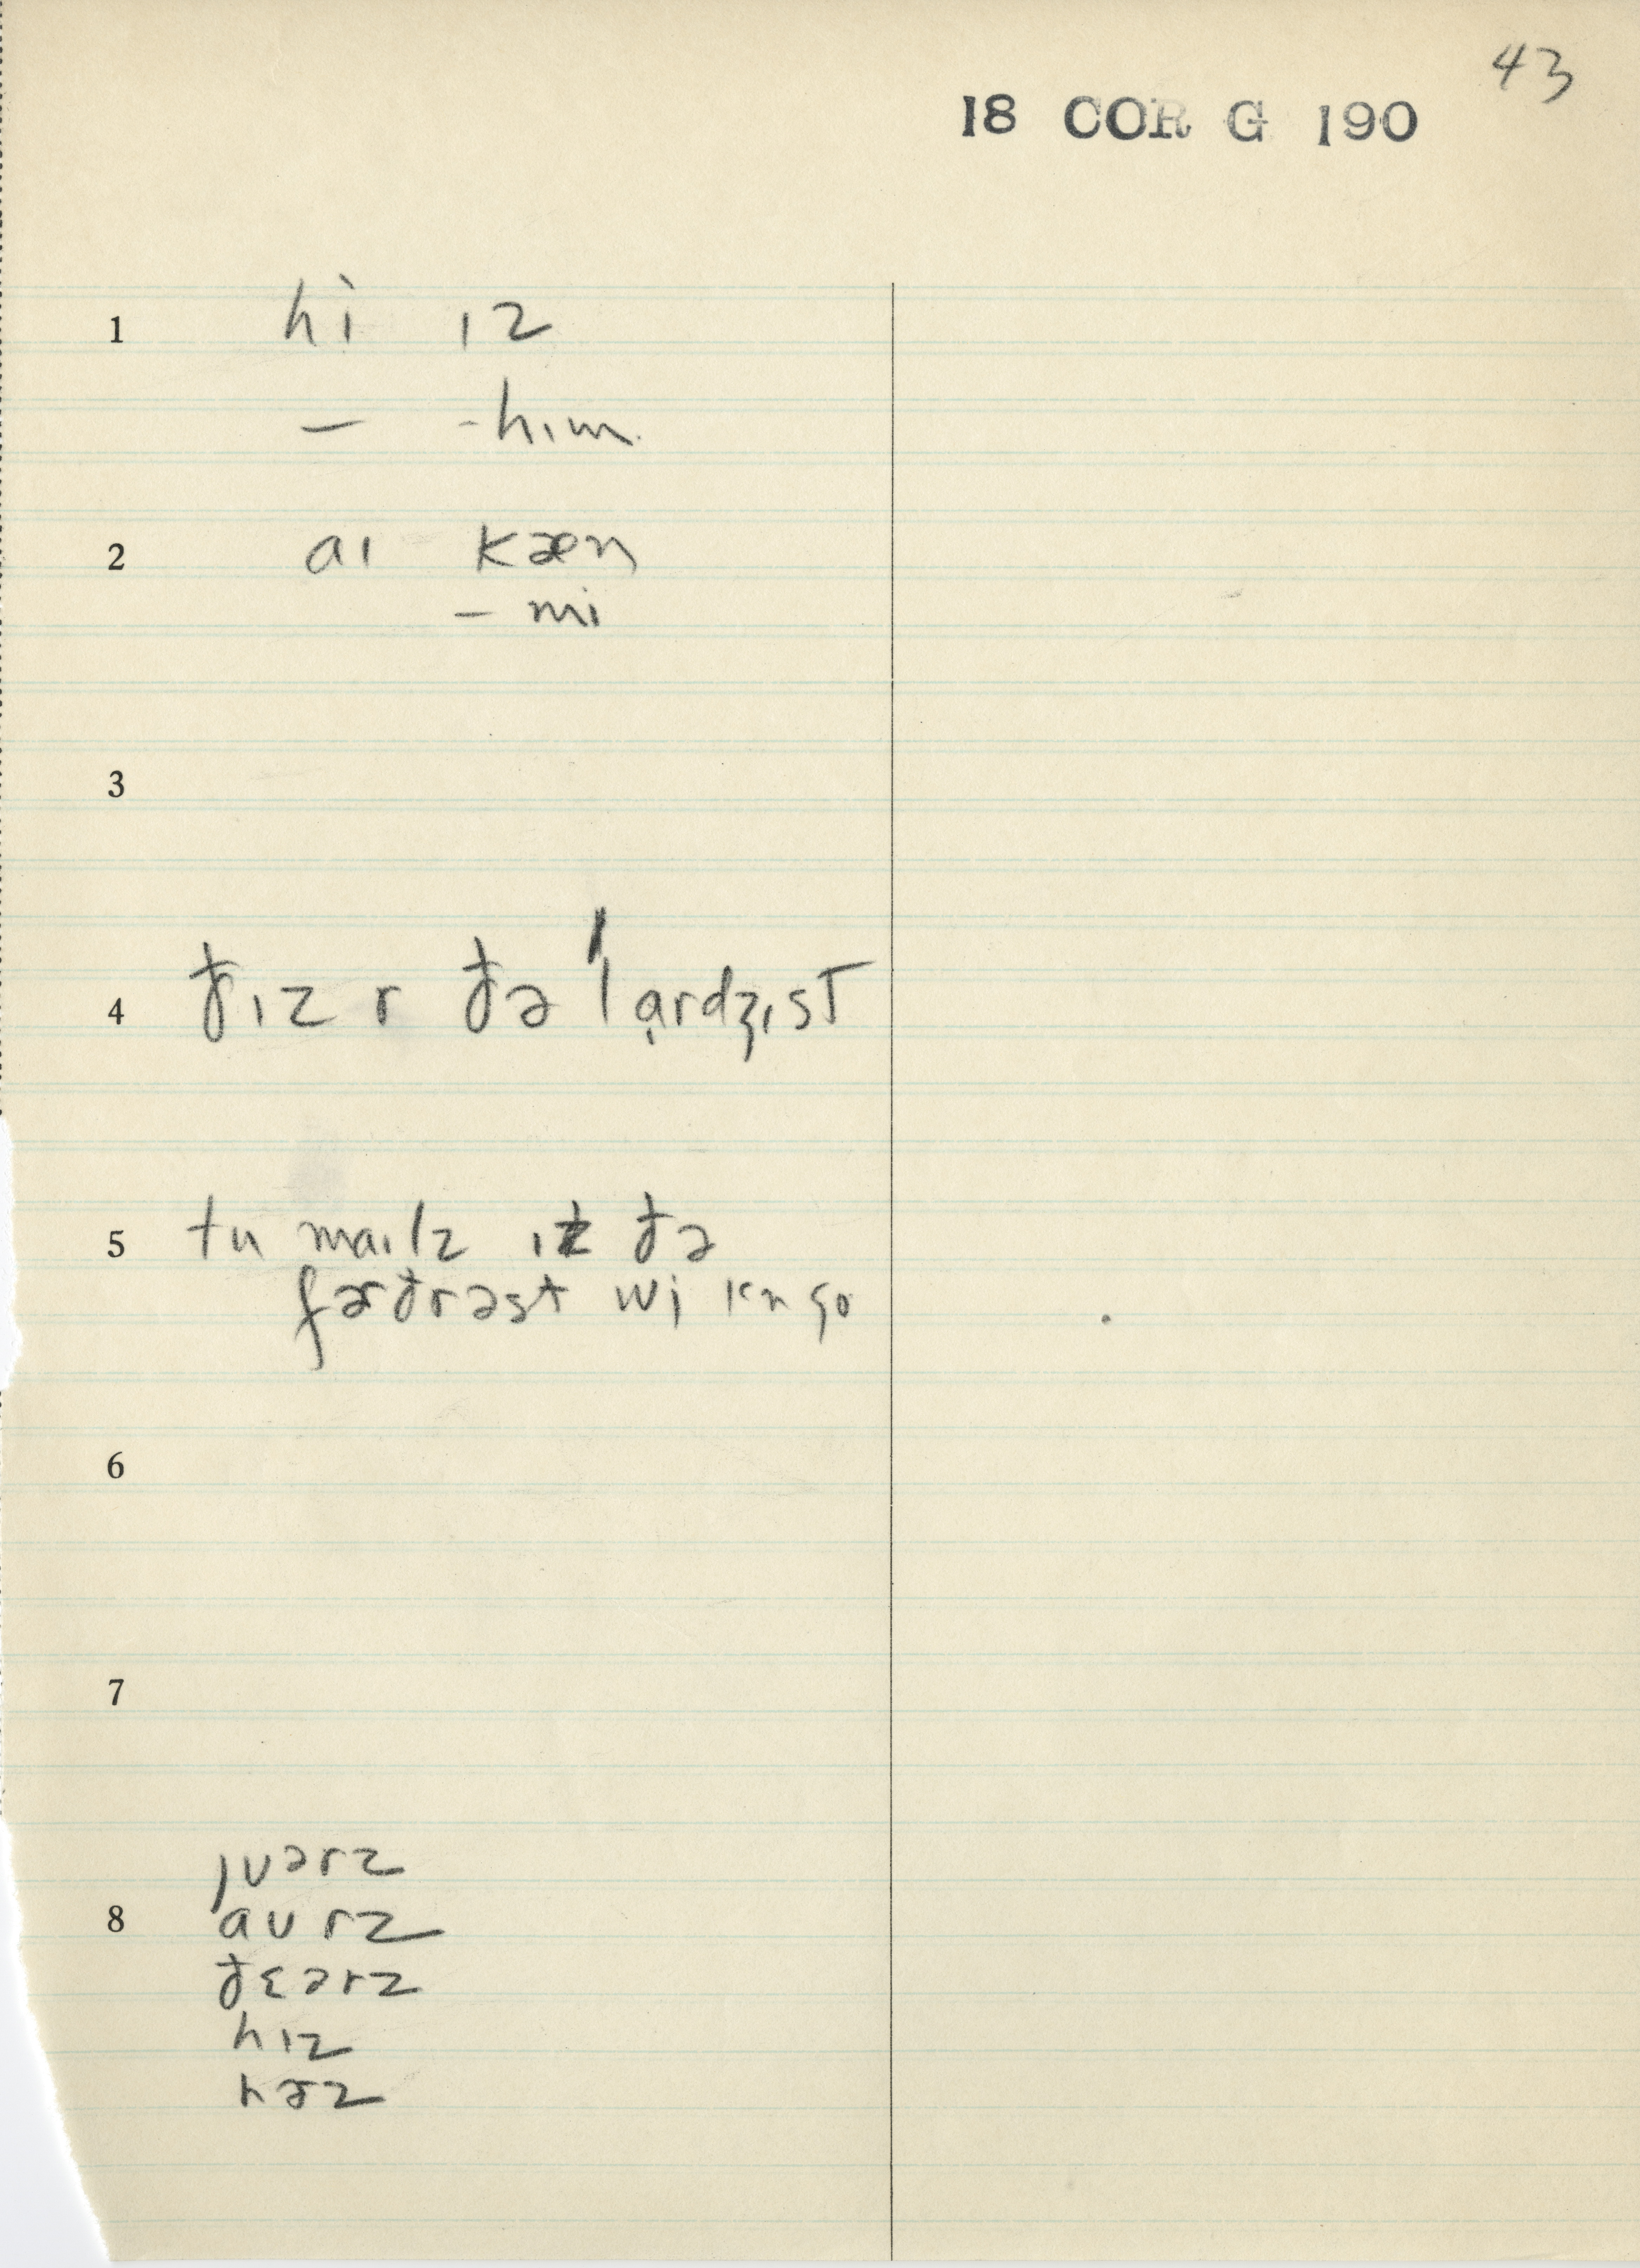 43
18 COR G 190
1 hi ɪz
— -hɪm
2 aɪ kæn
— mi
3
4 ðɪz r ðə ˈlɑrdʒɪst
5 tu maɪlz ɪz ðə
fɚðrəst wi kn go
6
7
jʊərz
8 aʊrz
ðɛərz
hɪz
hɚz